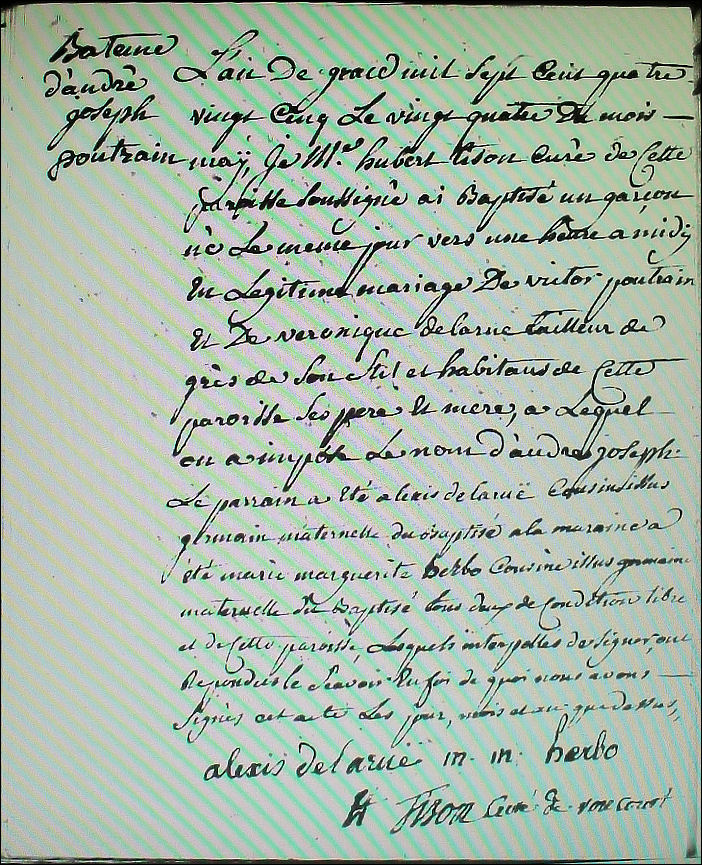 Bateme
d'andrê
joseph
poutrain
L'an De grace mil sept Cent quatre
vingt Cinq Le vingt quatre Du mois
maÿ, Je M.e hubert tison Curê de Cette
paroisse soussignê ai Baptisé un garçon
nê Le meme jour vers une heure a midÿ
En Legitime mariage De victor poutrain
Et De veronique delarue tailleur de
grès de son stil et habitans de Cette
paroisse ses pere Et mere, a Lequel
on a imposé Le nom d'andrê joseph.
Le parrain a Eté alexis de laruë Cousin issus
germain maternelle du Baptisé a la maraine a
été marie marguerite herbo Cousine issus germaine
maternelle du Baptisé tous deux de Condition libre
et de Cette paroisse, Lesquels interpelles de signer, ont
Repondus le scavoir En foi de quoi nous avons
signés cet acte Les jour, mois et an que dessus,
alexis delarue m. m. herbo
H tison Curé de